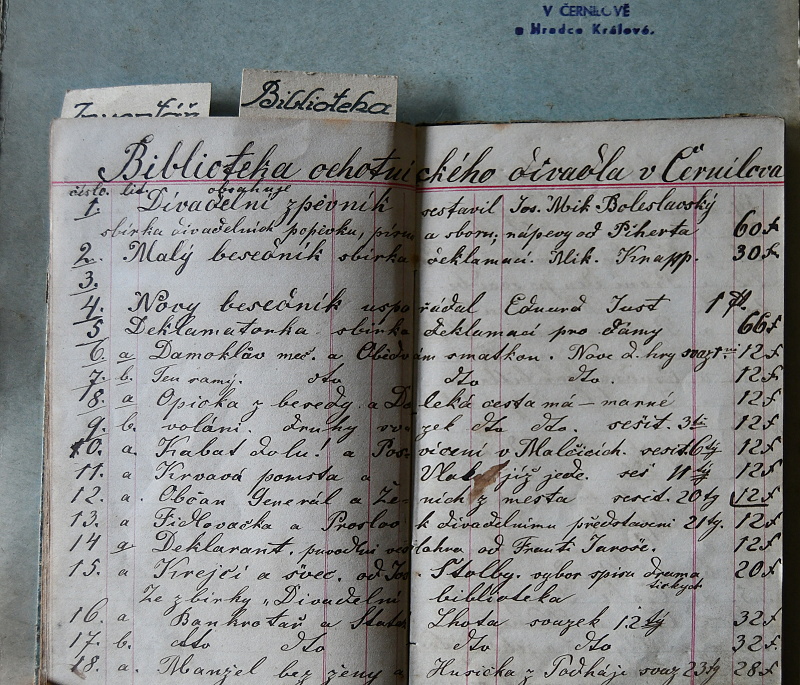 V ČERNILOVĚ
u Hradce Králové.
Inventář
Biblioteka
Biblioteka ochotnického divadla v Černilova
číslo. lit. obsahuje
1. Divadelní zpěvník sestavil Jos. Mik Boleslavský
sbírka divadelních popěvku, písní a sboru; nápěvy od Piherta 60 f
2. Malý besedník sbírka deklamací. Mik. Knapp. 30 f.
3.
4. Nový besedník uspořádal Eduard Just 1
5 Deklamatorka sbírka deklamací pro dámy 66 f
6. a Damoklův meč. a Obědvám s matkou. Nove d. hry svaz 12 f
7. b. Ten samý. dto dto dto. 12 f
8. a Opička z besedy. a Daleká cesta má – marné 12 f
9. b. volání. druhý svazek dto dto. sešit. 3tí 12 f
10. a. Kabát dolu! a Posvícení v Malčicích. sešit. 6tý 12 f
11. a Krvavá pomsta a Vlak již jede. seš 11tý 12 f
12. a. Občan Generál a Ženich z mesta sešit. 20tý 12 f
13. a Fidlovačka a Proslov k divadelnímu představení 21tý. 12 f
14 a Deklarant. puvodní veselohra od Frant. Jaroše. 12 f
15. a Krejčí a švec. od Jos. Štolby. výbor spisu drama tických 20 f
Ze zbírky „Divadelní biblioteka
16. a Bankrotář a Lhota svazek 12tý 32 f
17. b. dto dto dto dto 32 f.
18. a. Manžel bez ženy a Husička z Podháje svaz 23tý 28 f